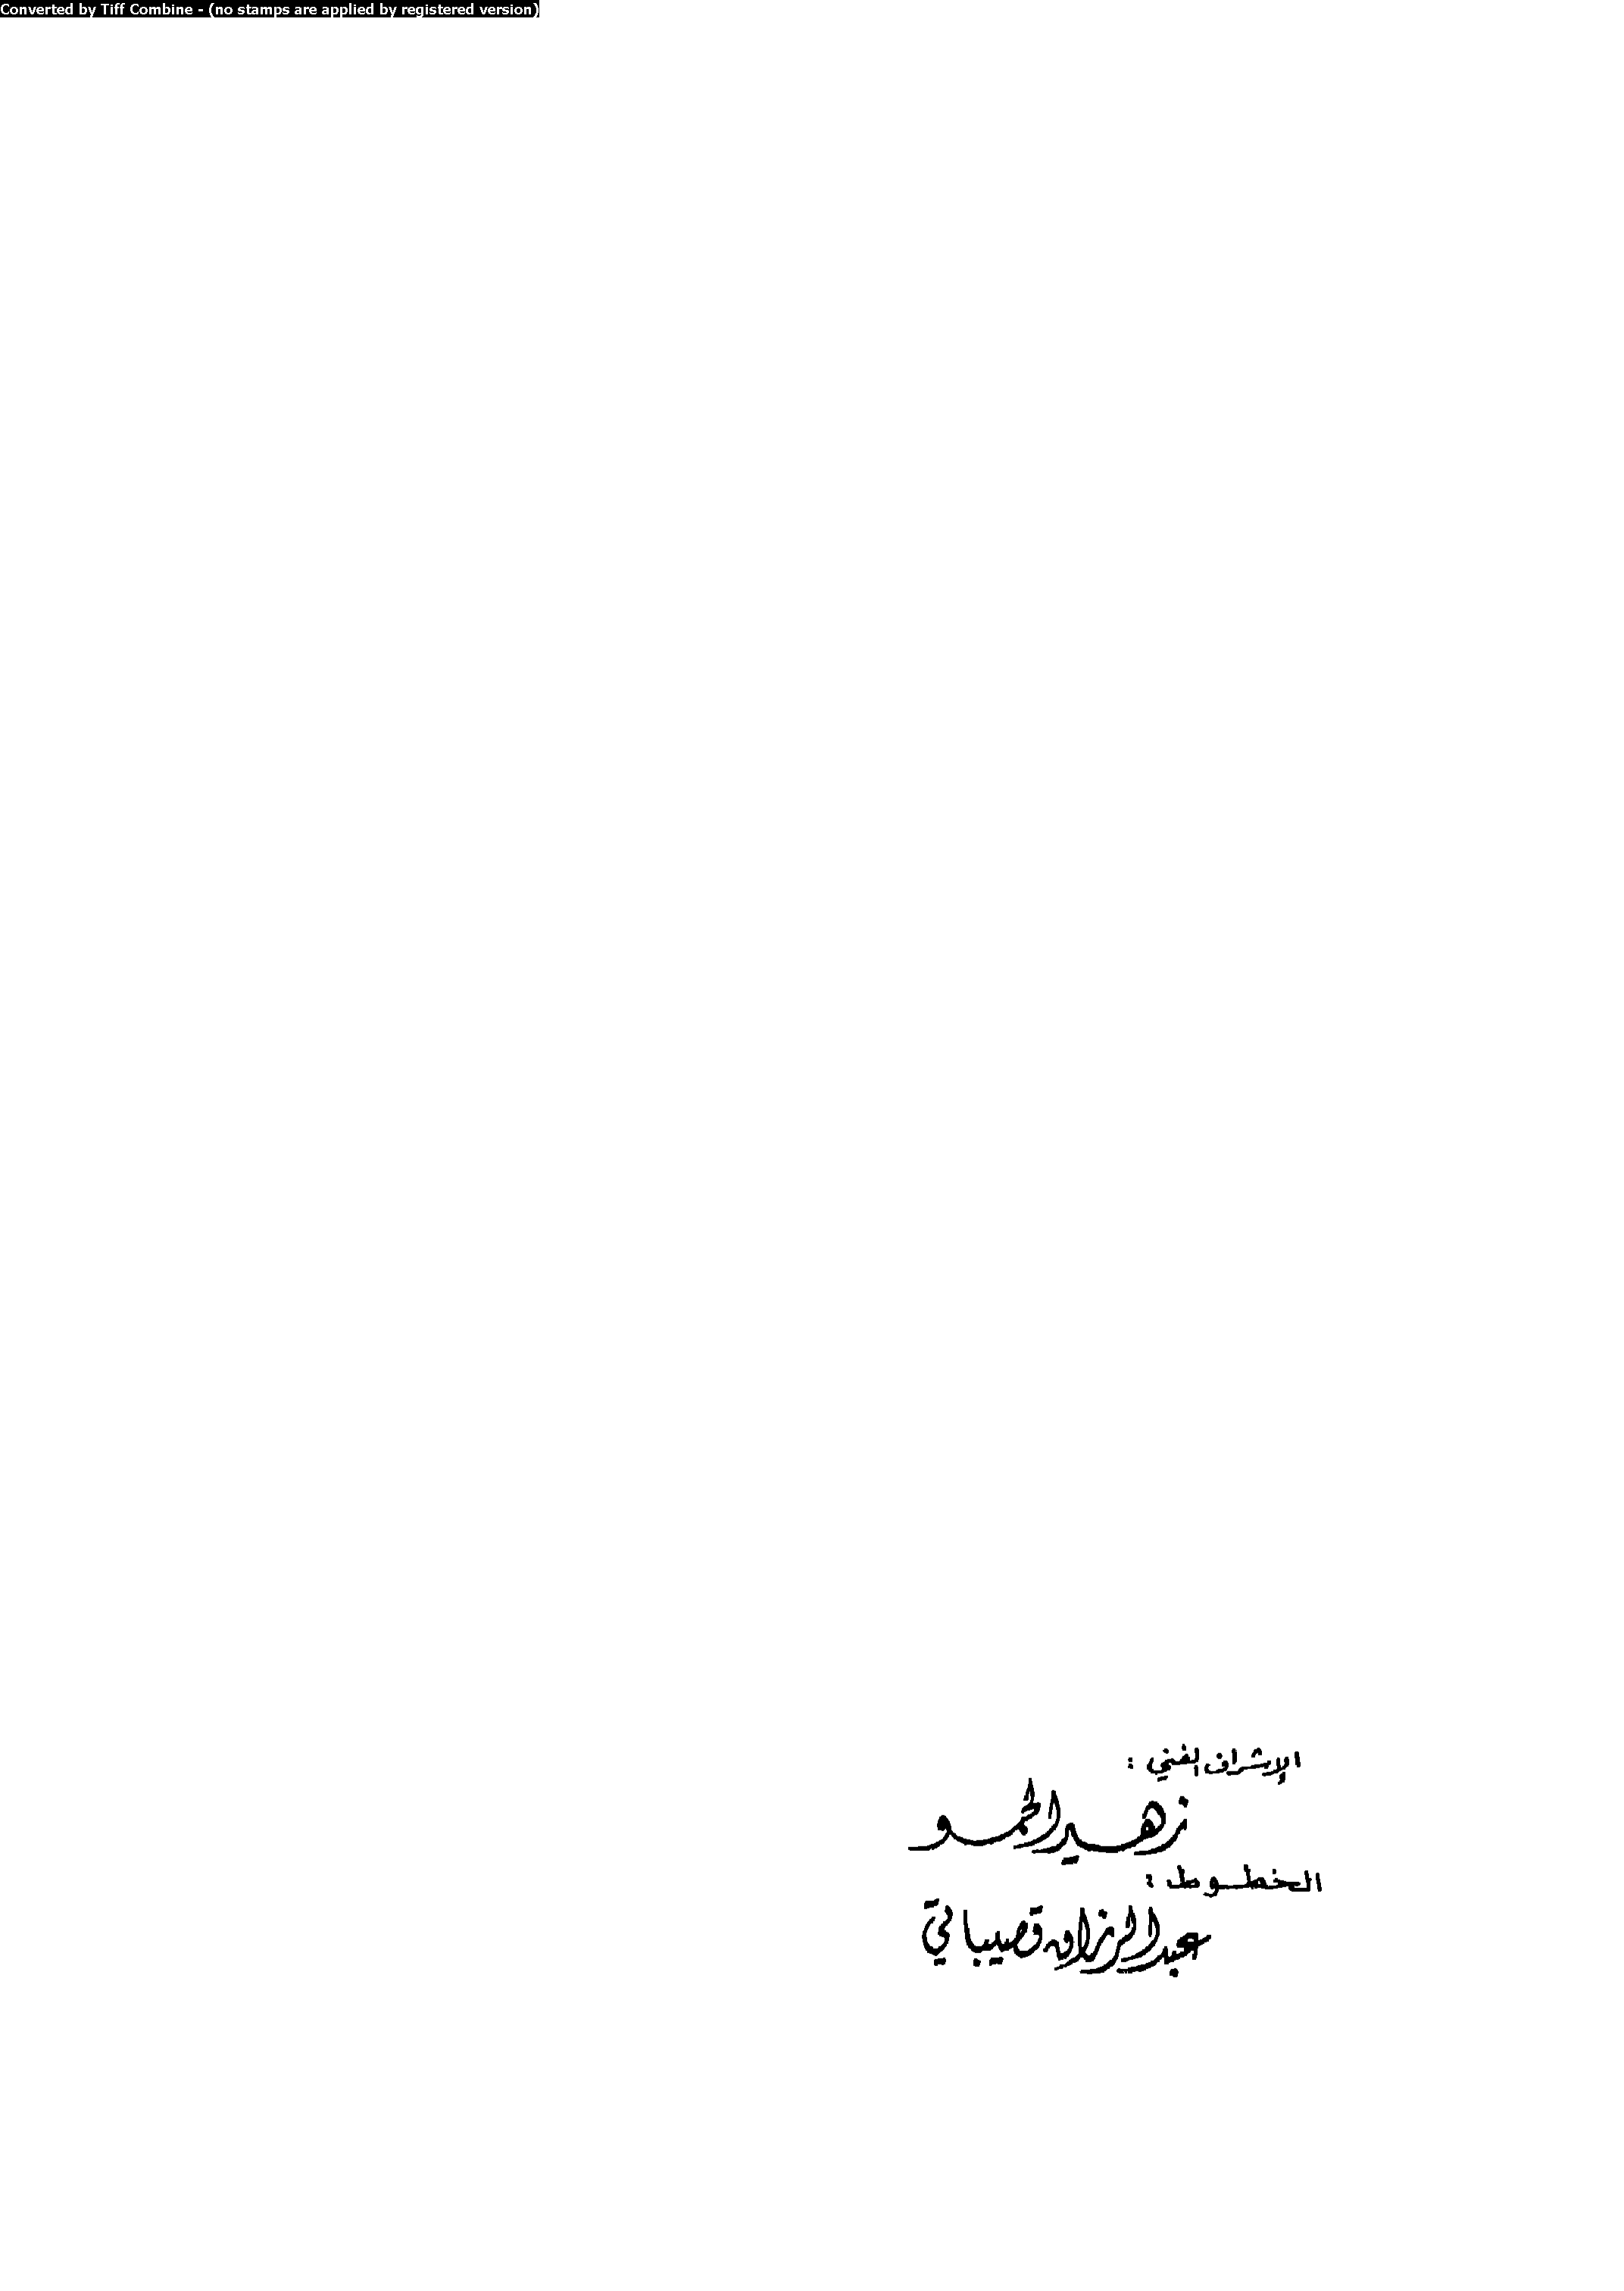 Converted by Tiff Combine - (no stamps are applied by registered version)
الإشراف الفني :
زهير الحمو
الخطوط :
عبد الرزاق قصيباتي